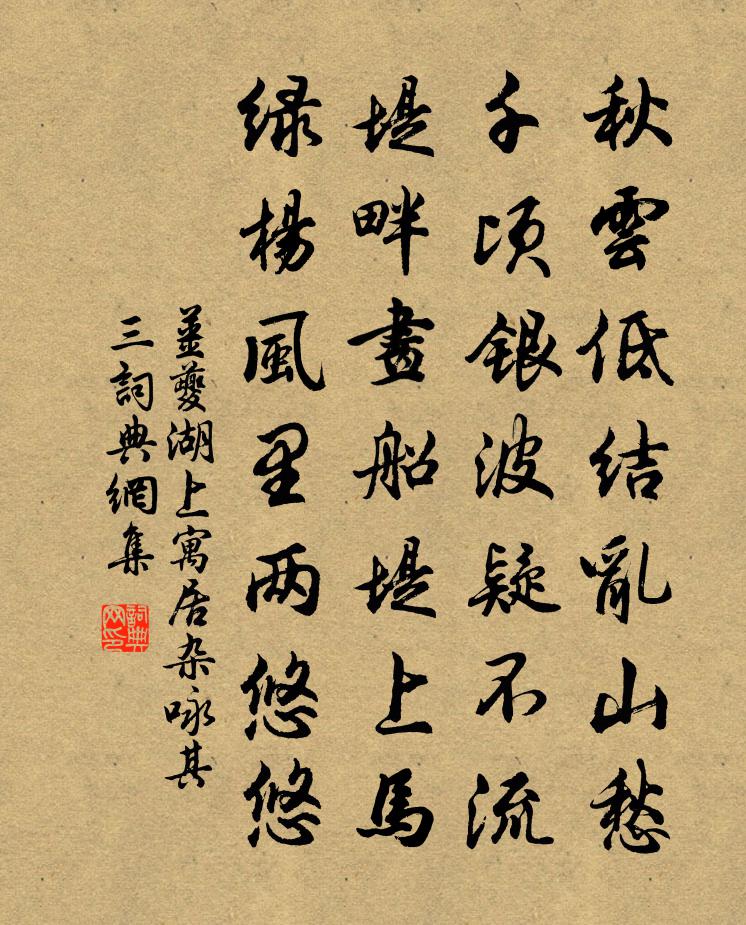 秋雲低结亂山愁
千頃銀波疑不流
堤畔畫船堤上馬
绿楊風里两悠悠
姜夔湖上寓居杂咏其
三詞典網集
詞典网印